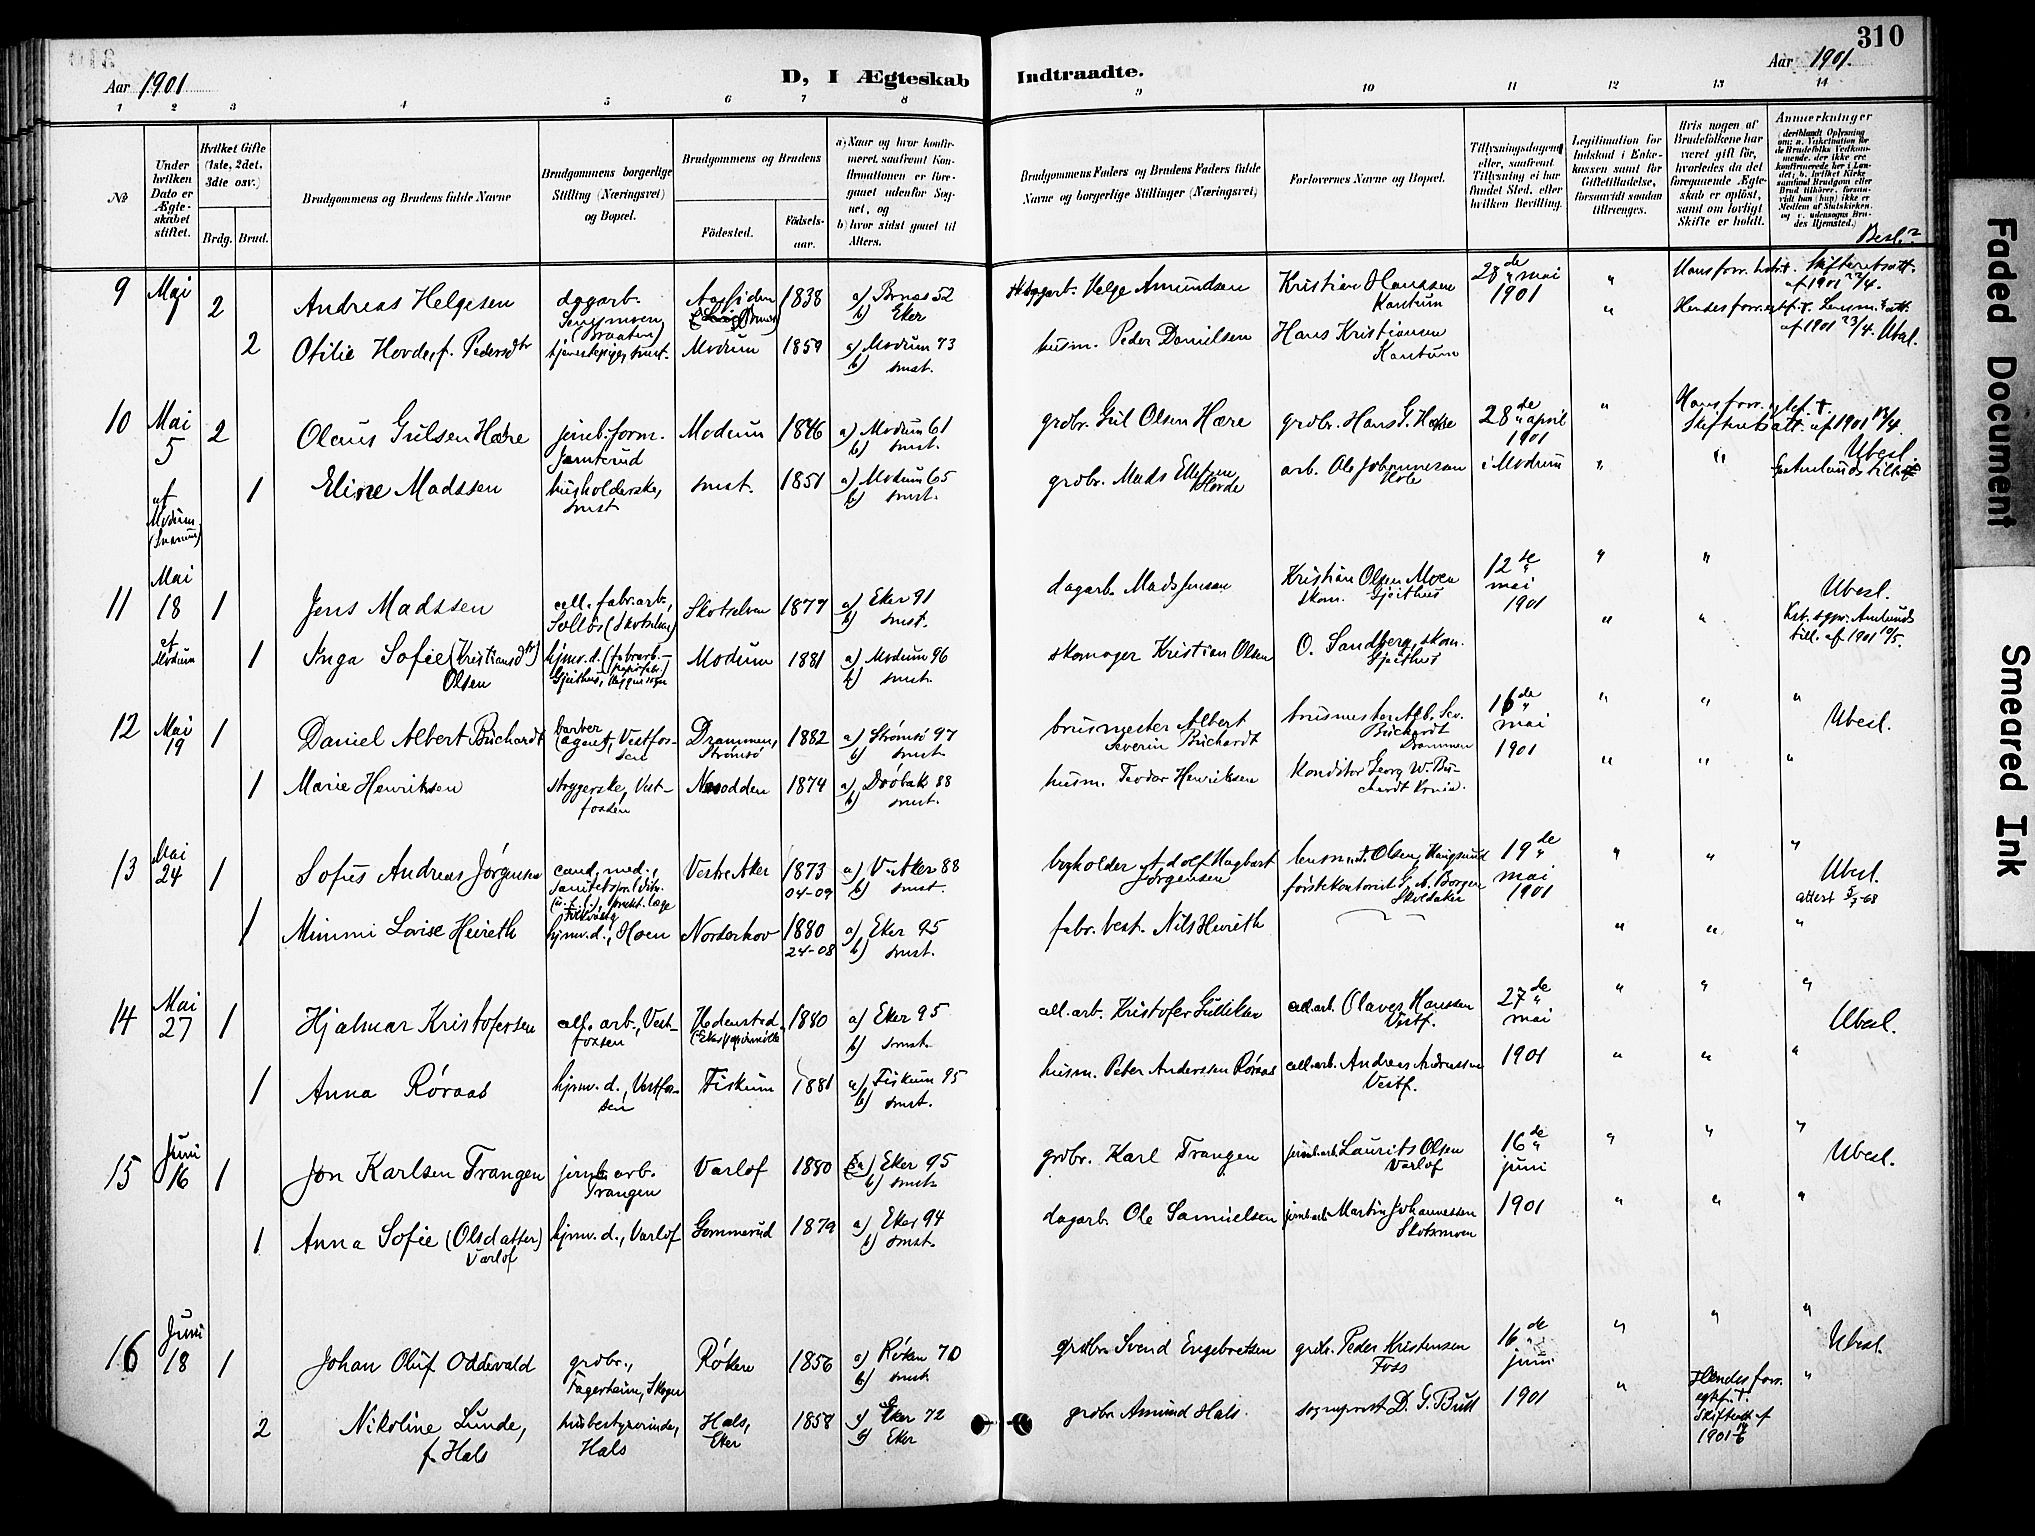 310
Aar 1901
D, I Ægteskab Indtraadte.
Aar 1901.
1 2 3 4 5 6 7 8 9 10 11 12 13 14
№
Under hvilken Dato er Ægteskabet stiftet.
Hvilket Gifte (1ste, 2det, 3dte osv.)
Brdg. Brud.
Brudgommens og Brudens fulde Navne
Brudgommens borgerlige Stilling (Næringsvei) og Bopæl.
Brudgommens og Brudens
Fødested.
Fødselsaar.
a) Naar og hvor konfirmeret, saafremt Konfirmationen er foregaaet udenfor Sognet, og
b) hvor sidst gaaet til Alters.
Brudgommens Faders og Brudens Faders fulde Navne og borgerlige Stillinger (Næringsvei)
Forlovernes Navne og Bopæl.
Tillysningsdagene eller, saafremt Tillysning ei har fundet Sted, efter hvilken Bevilling.
Legitimation for Indskud i Enkekassen samt for Giftetilladelse, forsaavidt saadan tiltrænges.
Hvis nogen af Brudefolkene har været gift før, hvorledes da det foregaaende Ægteskab er opløst, samt om lovligt Skifte er holdt.
Anmerkninger
9 Mai 1 2 Andreas Helgesen dagarb. 1838 a) Snarum 52 b) Eker
Helge Amundsen Kristian Hanssen Kantum 28de mai 1901 "
2 Otilie Hovde, f. Pedersdtr Modum 1859 a) Modum 73 b) smst.
husm. Peder Danielsen Hans Kristiansen Kantum " Ubesl.
10 Mai 5 2 Olaus Gulsen Hære jernb.form. Modum 1846 a) Modum 61 b) smst.
grdbr. Gul Olsen Hære grdbr. Hans G. Hære 28de april 1901 " Ubesl.
af Modum (Snarum) 1 Eline Madssen husholderske, smst smst. 1851 a) Modum 65 b) smst.
grdbr. Mads Ellefsen Hovde arb. Ole Johannessen Hole i Modum " "
11 Mai 18 1 Jens Madssen cell. fabr.arb., (Skotselven) Skotselven 1877 a) Eker 91 b) smst.
dagarb. Mads Jensen Kristian Olsen Moen skom. Gjeithus 12te mai 1901 " " Ubesl.
af Modum 1 Inga Sofie (Kristiansdtr) Olsen hjmv.d. Gjeithus, Modum 1881 a) Modum 96 b) smst.
skomager Kristian Olsen O. Sandberg, skom. Gjeithus " "
12 Mai 19 1 Daniel Albert Büchardt barber (agent), Vestfossen Drammen, Strømsø 1882 a) Strømsø 97 b) smst.
brusmester Albert Severin Büchardt brusmester Alb. Sev. Büchardt Drammen 16de mai 1901 " " " Ubesl.
1 Marie Henriksen strygerske, Vestfossen Nesodden 1874 a) Drøbak 88 b) smst.
husm. Teodor Henriksen Konditor Georg W. Büchardt " " "
13 Mai 24 1 Sofus Andreas Jørgensen cand. med., Vestre Aker 1873 04-09 a) V. Aker 88 b) smst.
bogholder Adolf Hagbart Jørgensen lensm. Olsen, Haugsund 19de mai 1901 " " " Ubesl. attest
1 Mimmi Lovise Heireth hjmv.d., Hoen Norderhov 1880 24-08 a) Eker 95 b) smst.
fabr. best. Nils Heireth førstekontorist G. A. Borgen " " "
14 Mai 27 1 Hjalmar Kristofersen cell. arb., Vestfossen Hedensted 1880 a) Eker 95 b) smst.
cell. arb. Kristofer Gulliksen cell.arb. Olaves Hanssen Vestf. 27de mai 1901 " " " Ubesl.
1 Anna Røraas hjmv. d., Vestfossen Fiskum 1881 a) Fiskum 95 b) smst.
husm. Peter Anderssen Røraas cell.arb. Andreas Andreassen Vestf. " " "
15 Juni 16 1 Jon Karlsen Trangen jernb arb. Trangen Varlof 1880 a) Eker 95 b) smst.
grdbr. Karl Trangen jernb.arb. Laurits Olsen Varlof 16de juni 1901 " " " Ubesl.
1 Anna Sofie (Olsdatter) Varlof hjmv. d., Varlof Gommerud 1879 a) Eker 94 b) smst.
dagarb. Ole Samuelsen jernb.arb. Martin Johannessen Skotsmoen " " "
16 Juni 18 1 Johan Oluf Oddevald grdbr., Fagerheim, Skoger Røken 1856 a) Røken 70 b) smst
grdbr. Svend Engebretsen grdbr. Peder Kristensen Foss 16de juni 1901 " " " Ubesl.
2 Nikoline Lunde, f. Hals husbestyrerinde, Hals Hals, Eker 1858 a) Eker 72 b) Eker
grdbr. Amund Hals sogneprest D. G. Bull " Hendes forr. egtef. †. Skifteatt af 1901 "
Faded Document
Smeared Ink